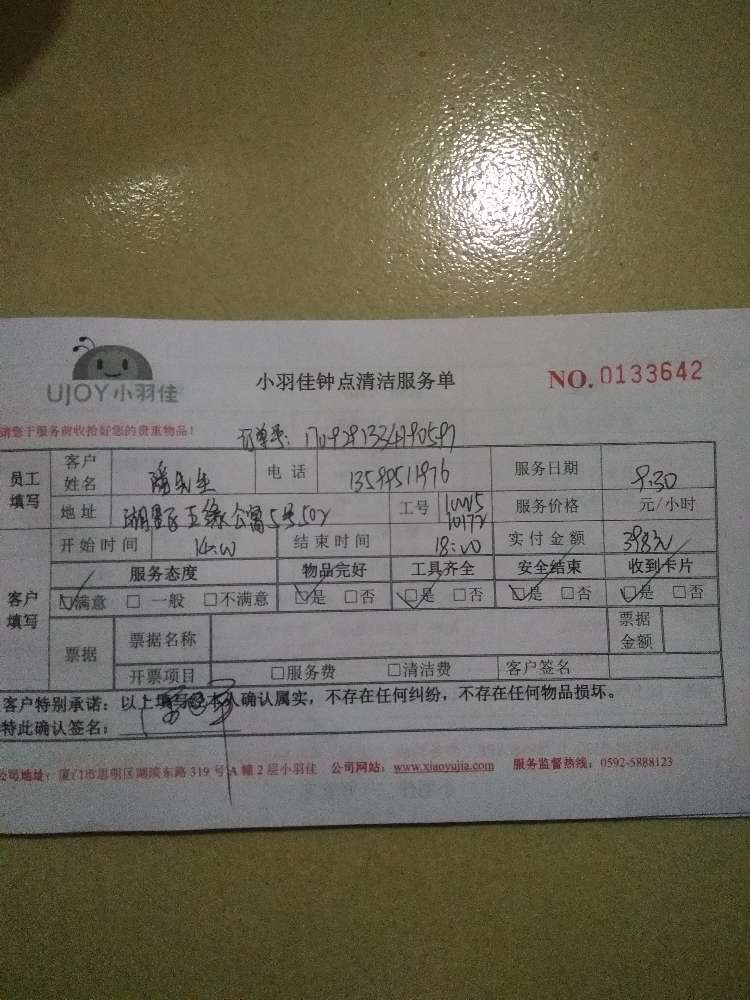 UJOY小羽佳
小羽佳钟点清洁服务单
NO.0133642
请您于服务前收拾好您的贵重物品！
订单号：
员工填写 客户姓名 潘先生 电话 服务日期 9.30
地址 5号502 工号 10172 服务价格 元/小时
开始时间 14:00 结束时间 18:00 实付金额 398元
客户填写 服务态度 物品完好 工具齐全 安全结束 收到卡片
☑满意 □一般 □不满意 ☑是 □否 ☑是 □否 ☑是 □否 ☑是 □否
票据 票据名称 票据金额
开票项目 □服务费 □清洁费 客户签名
客户特别承诺：以上填写经本人确认属实，不存在任何纠纷，不存在任何物品损坏。
特此确认签名：
公司地址：厦门市思明区湖滨东路319号A幢2层小羽佳 公司网站：www.xiaoyujia.com 服务监督热线：0592-5888123